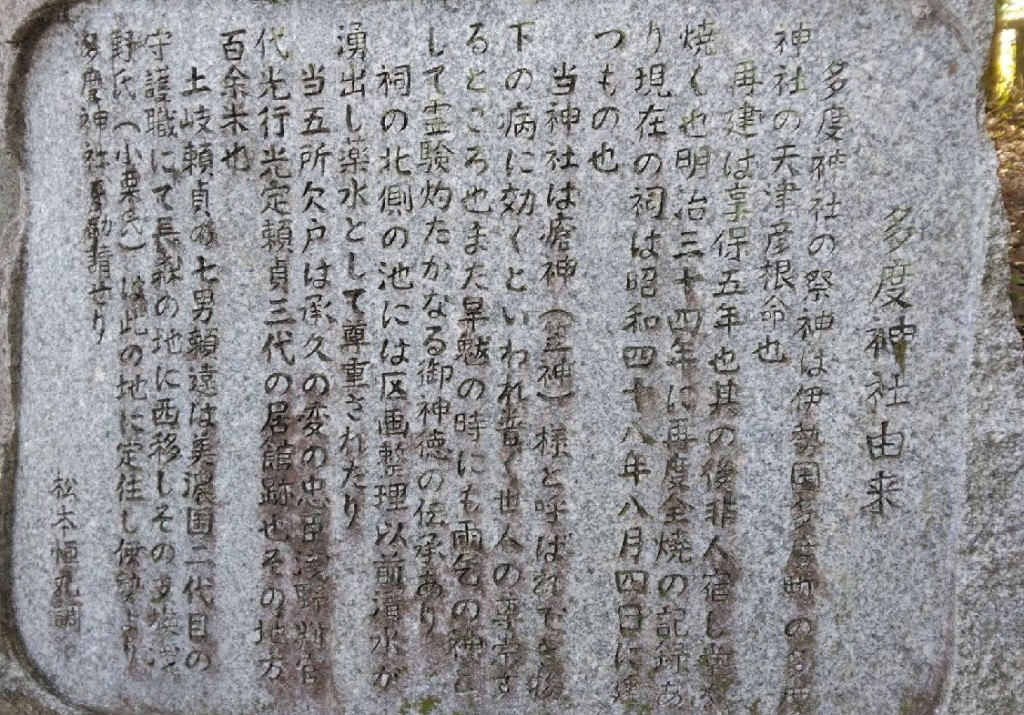 多度神社由来
多度神社の祭神は伊勢国多度町の多度
神社の天津彦根命也
再建は享保五年也其の後非人宿し
焼く也明治三十四年に再度全焼の記録あ
り現在の祠は昭和四十八年八月四日に建
つもの也
当神社は瘡神（笠神）様と呼ばれでき物
下の病に効くといわれ普く世人の尊崇す
るところ也また旱魃の時にも雨乞の神と
して霊験灼たかなる御神徳の伝承あり
祠の北側の池には区画整理以前清水が
湧出し薬水として尊重されたり
当五所欠戸は承久の変の忠臣浅野判官
代光行光定頼貞三代の居館跡也その地方
百余米也
土岐頼貞の七男頼遠は美濃国二代目の
守護職にて長森の地に西移しその支族浅
野氏（小栗氏）は此の地に定住し伊勢より
多度神社を勧請せり
松本恒丸調